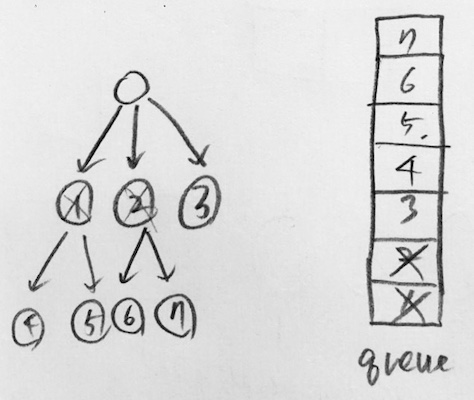 1 2 3
4 5 6 7
7
6
5.
4
3
2
1
queue